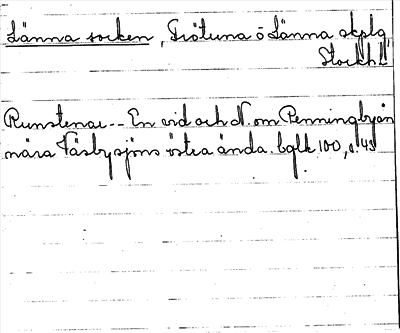 Länna socken, Frötuna o Länna skplg,
Stockh. l.
Runstenar -- En vid och N. om Penningbyån
nära Väsbysjöns östra ända. bglk 100, s. 43